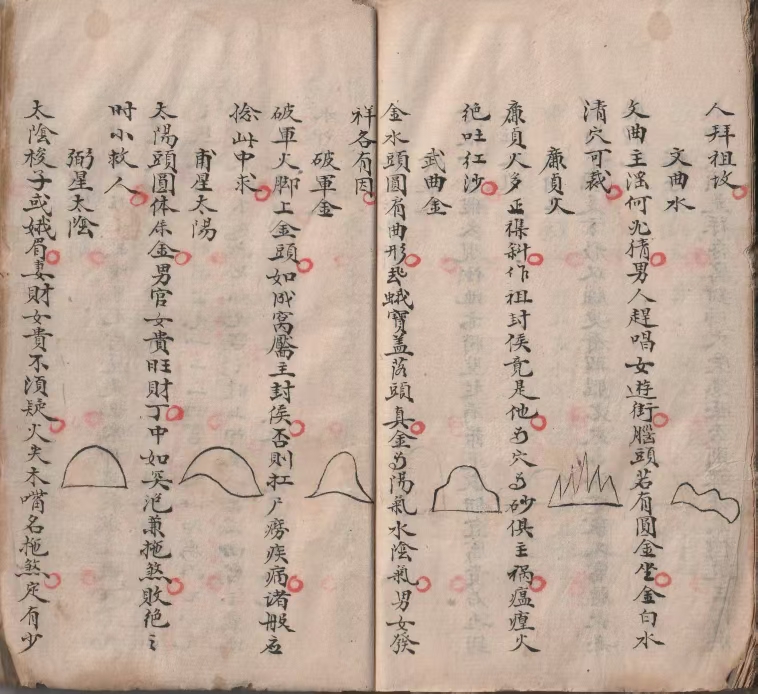 人拜祖坟
文曲水
文曲主淫何尤猜男人趕唱女遊街腦頭若有圓金坐金白水
清穴可裁
廉貞火
廉貞火多正禄斜作祖封侯竟是他为穴为砂俱主禍瘟瘴火
绝吐红沙
武曲金
金水頭圓肩曲形或蛾寶盖落頭真金为陽氣水陰氣男女發
祥各有因
破軍金
破軍火脚上金頭如成窩靨主封侯否則扛尸痨疾痛诸般应
捻此中求
甫星太陽
太陽頭圓体属金男官女貴旺財丁中如突泡兼拖煞敗绝之
时小救人
弼星太陰
太陰梭子或娥眉妻財女貴不須疑火尖木嘴名拖煞定有少